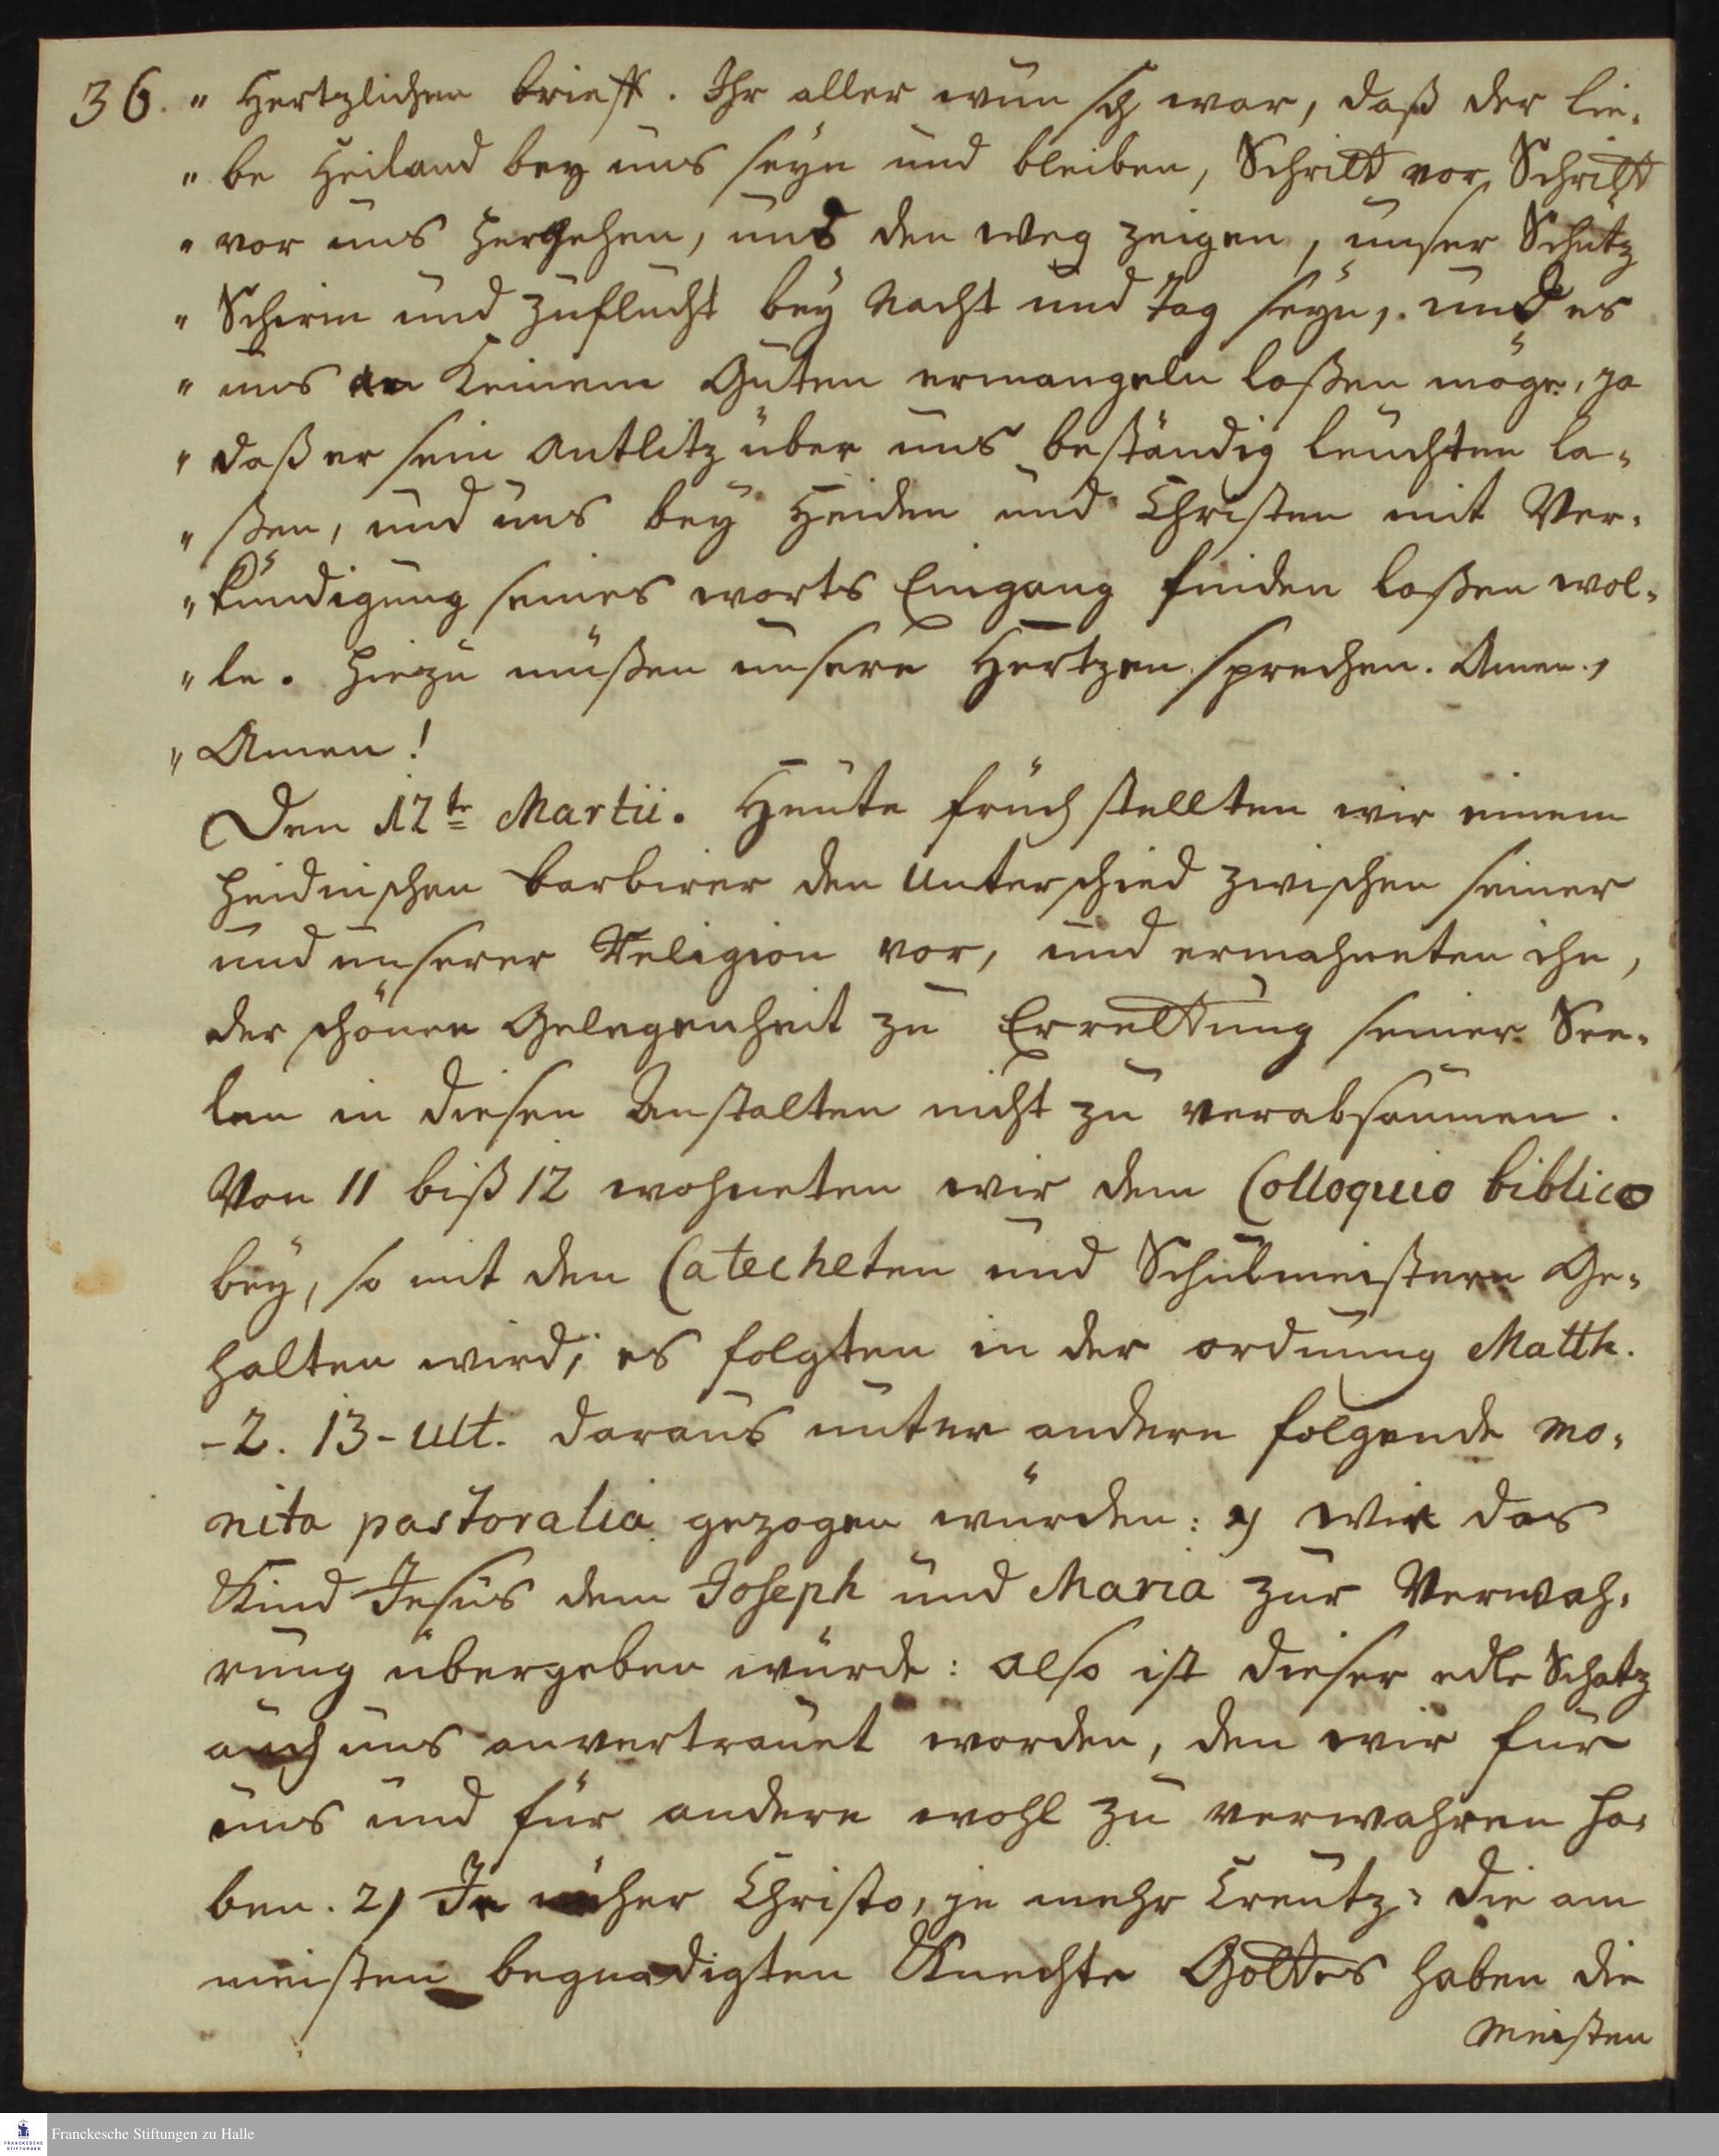 36. " Hertzlichen brieff. Ihr aller wunsch war, daß der lie-
" be Heiland bey uns seyn und bleiben, Schritt vor Schritt
" vor uns hergehen, uns den weg zeigen, unser Schutz
" Schirm und Zuflucht bey Nacht und Tag seyn, und es
" uns an keinem Guten ermangeln laßen möge, ja
" daß er sein Antlitz über uns beständig leuchten la-
" ßen, und uns bey Heiden und Christen mit Ver-
" kündigung seines worts Eingang finden laßen wol-
" le. Hiezu müßen unsere Hertzen sprechen. Amen,
" Amen!
Den 12te Martii. Heute früh stellten wir einem
heidnischen barbirer den Unterschied zwischen seiner
und unserer Religion vor, und ermahneten ihn,
der schönen Gelegenheit zu Errettung seiner See-
len in diesen Anstalten nicht zu verabsäumen.
Von 11 biß 12 wohneten wir dem Colloquio biblico
bey, so mit den Catecheten und Schulmeistern Ge-
halten wird; es folgten in der ordnung Matth.
-2. 13-ult. daraus unter andern folgende mo-
nita pastoralia gezogen wurden: 1) Wie das
Kind Jesus dem Joseph und Maria zur Verwah-
rung übergeben wurde: also ist dieser edle Schatz
auch uns anvertrauet worden, den wir für
uns und für andere wohl zu verwahren ha-
ben. 2) Je näher Christo, je mehr Creutz: die am
meisten begnadigten Knechte Gottes haben die
meisten
Franckesche Stiftungen zu Halle
FRANCKESCHE
STIFTUNGEN